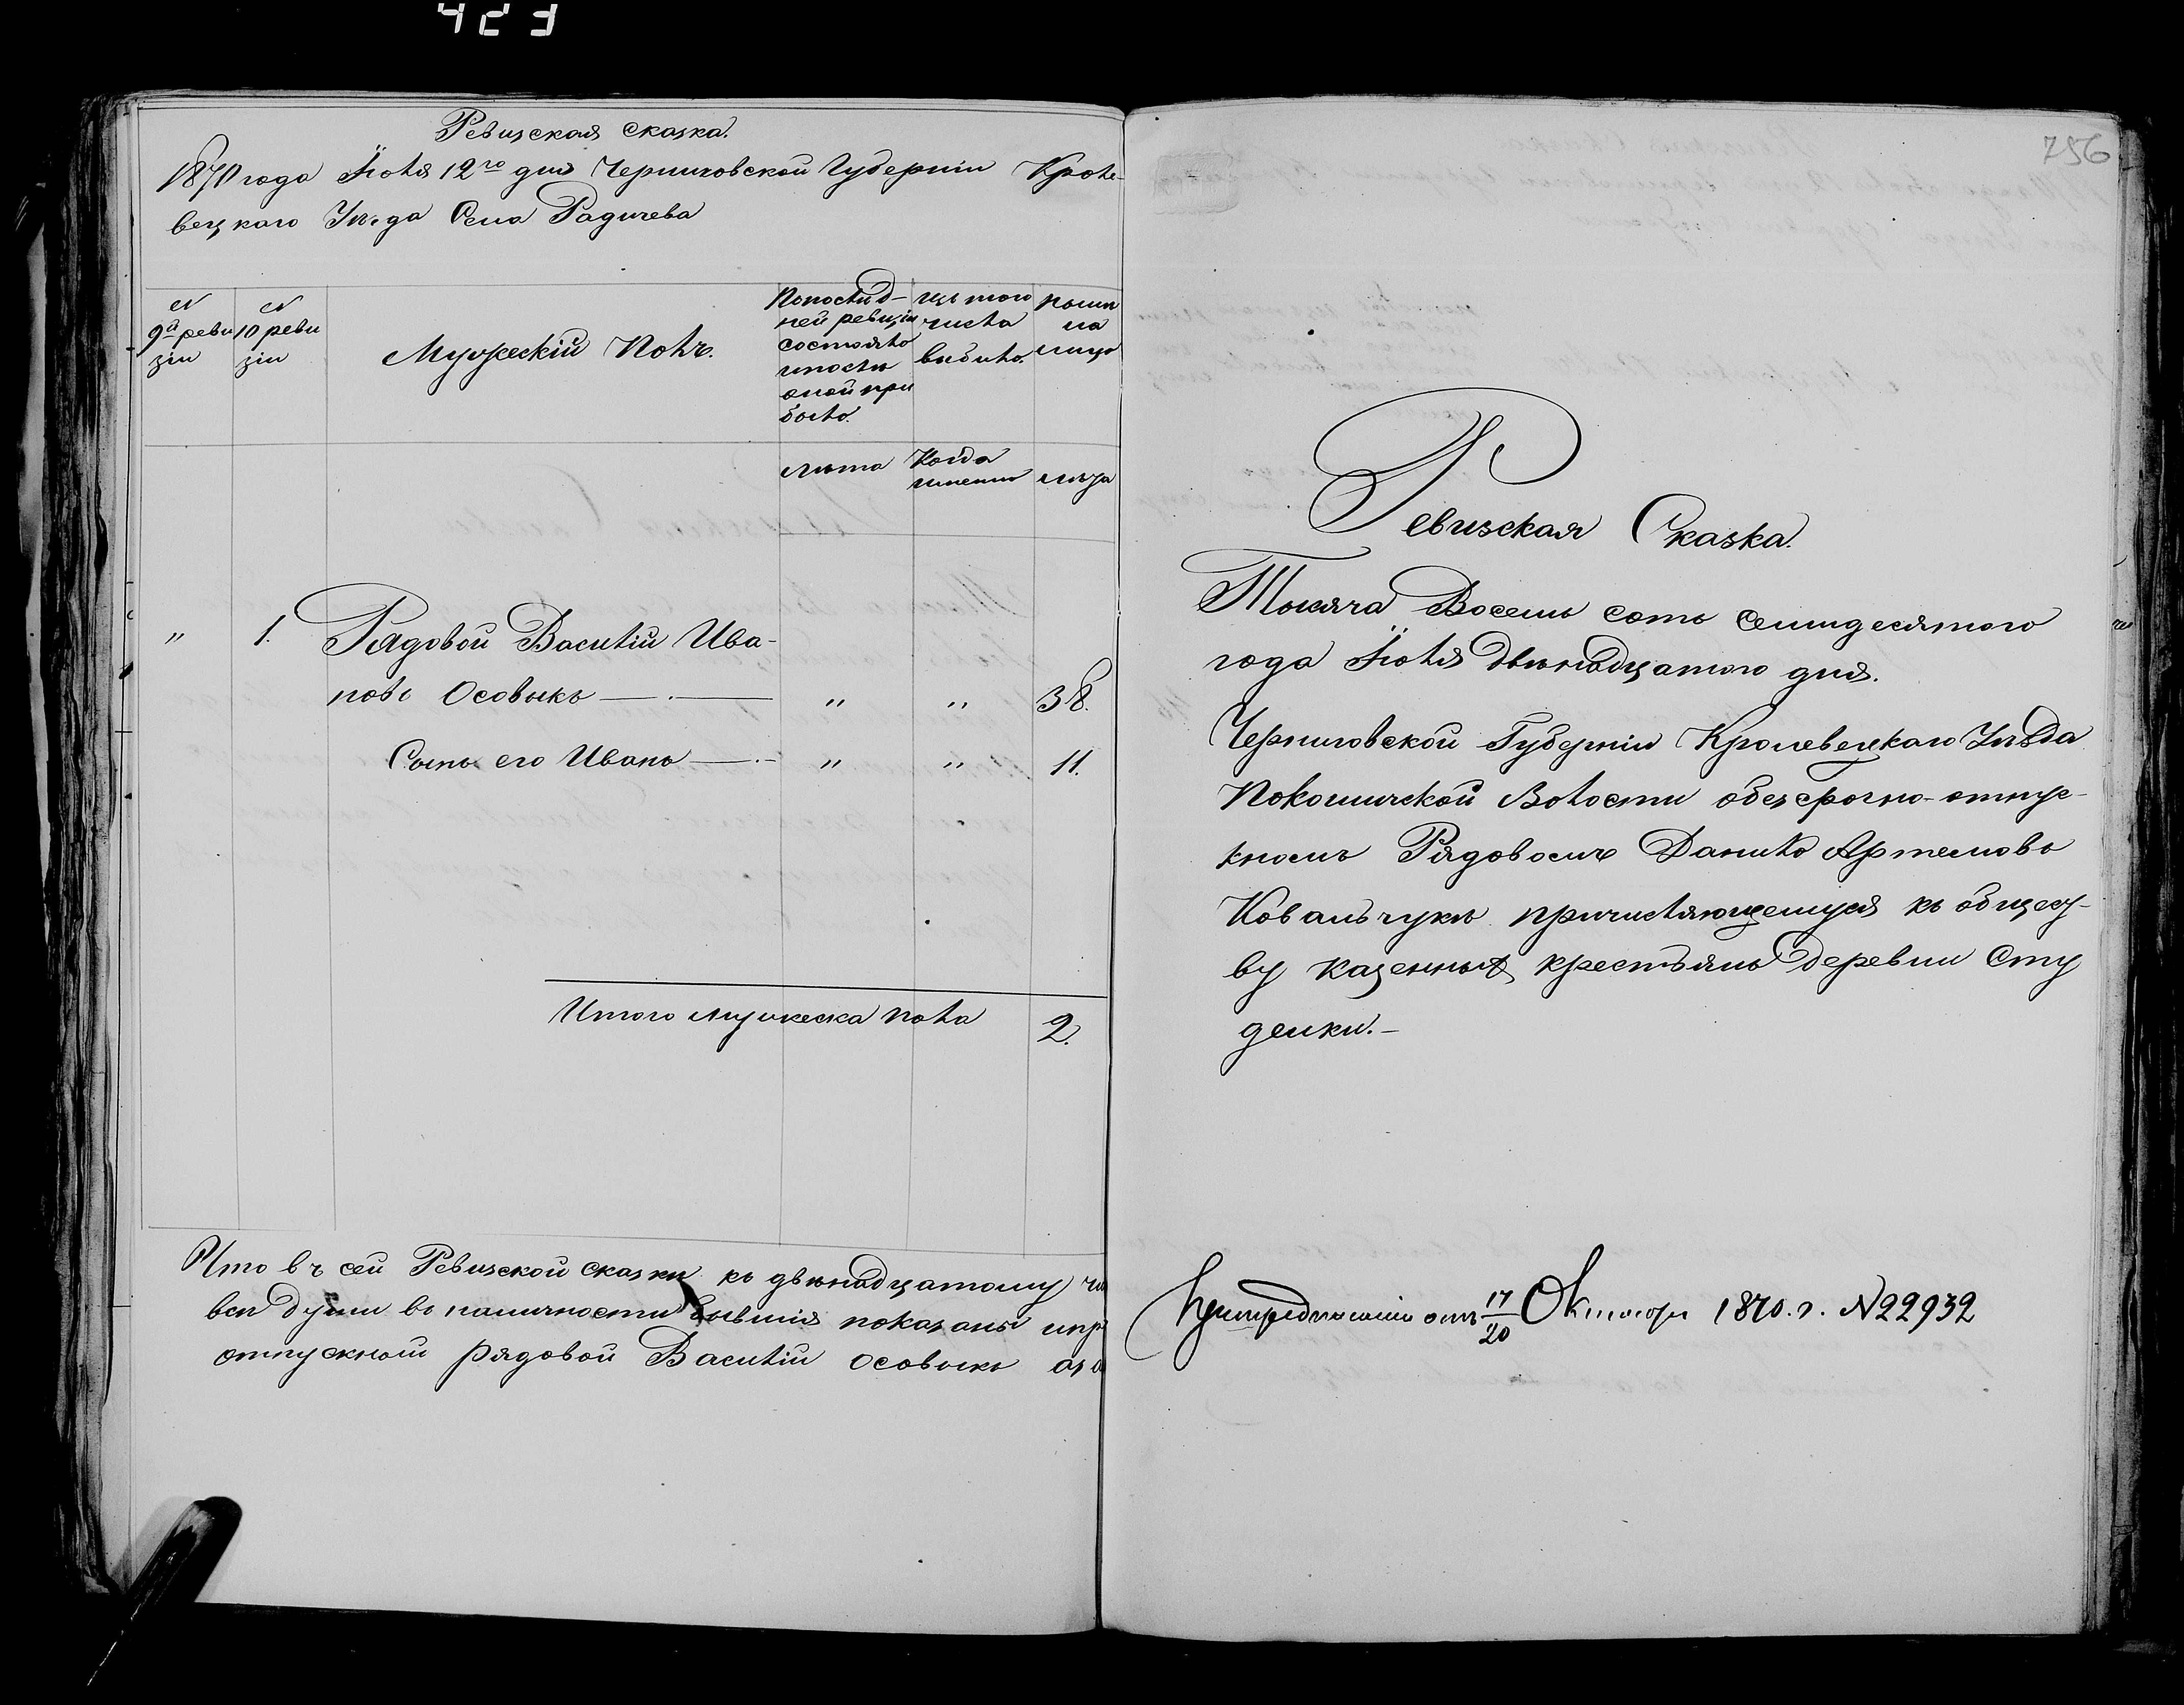 423
Ревизская сказка.
1870 года Іюля 12го дня Черниговской Губерніи Кроле-
вецкаго Уѣзда Села Радичева
N 9й ревизіи
N 10 ревизіи
Мужескій Полъ.
Попослѣд-
ней ревизіи
состояло
ипослѣ
оной при
было.
изъ того
числа
выбыло.
нынѣ
на
лицо
лѣта
Когда
именно
лѣта
" 1. Рядовой Василій Ива-
новъ Осовыкъ " " 38.
Сынъ его Иванъ " " 11.
Итого мужеска пола 2.
Что въ сей Ревизской сказкѣ къ двѣнадцатому чи
всѣ души въ наличности бывшія показаны ипр
отпускной рядовой Василій Осовыкъ аз
756
Ревизская Сказка.
Тысяча Восемь сотъ Семидесятого
года Іюля двѣнадцатого дня.
Черниговской Губерніи Кролевецкаго Уѣзда
Покошичской Волости обезсрочно-отпус-
кномъ Рядовомъ Данило Артемовъ
Ковальчукѣ причисляющемуся къ общес-
ву казенныхъ крестьянъ деревни Сту
денки.-
При предписаніи отъ 17/20 Октября 1870. г. N 22932